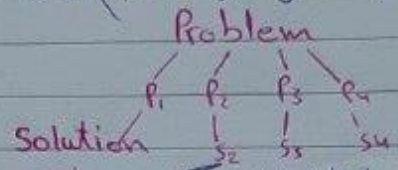 Problem
P₁ P₂ P₃ P₄
Solution S₂ S₃ S₄